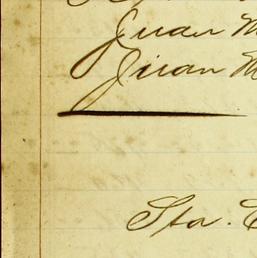 Juan M
Juan M
Sta.